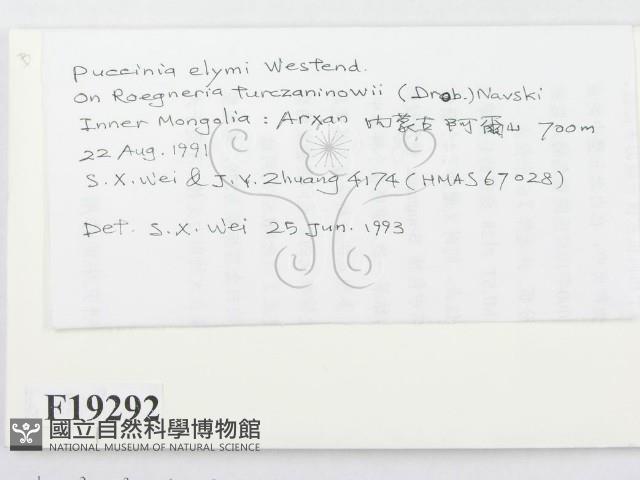 Puccinia elymi Westend.
On Roegneria turczaninowii (Drob.) Navski
Inner Mongolia : Arxan 內蒙古 阿爾山 700m
22 Aug. 1991
S. X. Wei & J. Y. Zhuang 4174 (HMAS 67028)
Det. S. X. Wei 25 Jun. 1993
F19292
國立自然科學博物館
NATIONAL MUSEUM OF NATURAL SCIENCE